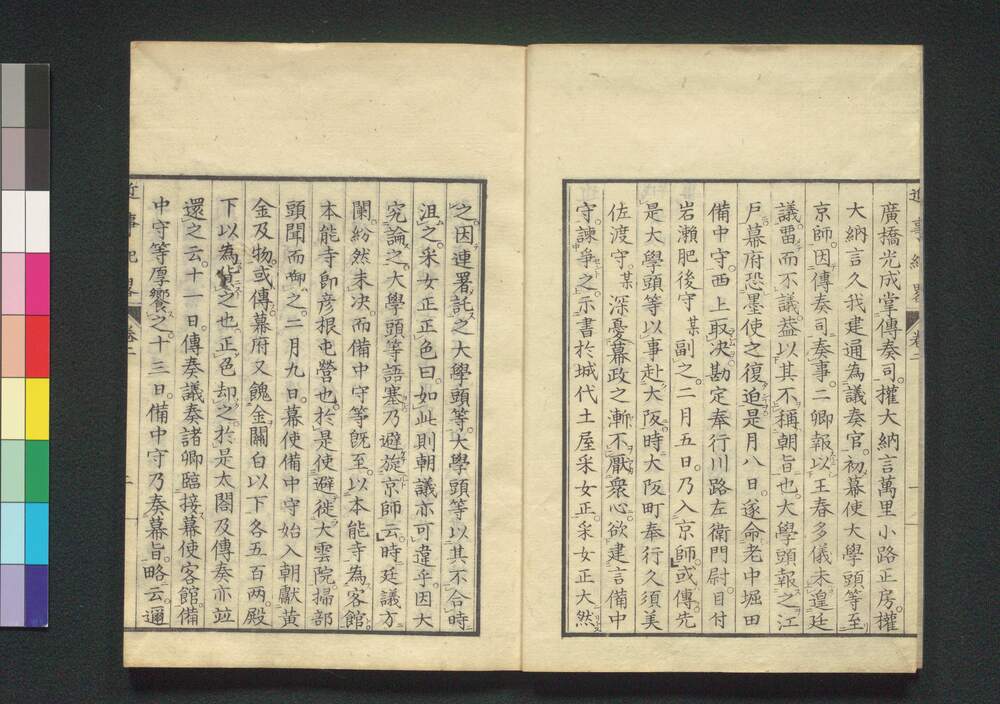 廣橋光成掌傳奏司。權大納言萬里小路正房。權
大納言久我建通為議奏官。初幕使大學頭等至
京師。因傳奏司奏事。二卿報以王春多儀未遑廷
議。畱而不議。葢以其不稱朝旨也。大學頭報之江
戶。幕府恐墨使之復迫。是月八日。遂命老中堀田
備中守。西上取决。勘定奉行川路左衛門尉。目付
岩瀬肥後守某副之。二月五日。乃入京師。或傳。先
是大學頭等以事赴大阪。時大阪町奉行久須美
佐渡守某。深憂幕政之漸不厭衆心。欲建言備中
守。諫爭之。示書於城代土屋采女正。采女正大然
之。因連署託之大學頭等。大學頭等以其不合時
沮之。采女正正色曰。如此則朝議亦可違乎。因大
究論之。大學頭等語塞。乃避旋京師云。時廷議方
闌。紛然未决。而備中守等旣至。以本能寺為客館。
本能寺卽彦根屯營也。於是使避徙大雲院。掃部
頭聞而啣之。二月九日。幕使備中守始入朝獻黃
金及物。或傳。幕府又餽金關白以下各五百两。殿
下以為貨之也。正色却之。於是太閤及傳奏亦竝
還之云。十一日。傳奏議奏諸卿臨接幕使客館。備
中守等厚饗之。十三日。備中守乃奏幕旨。略云。邇
近事紀畧
卷二